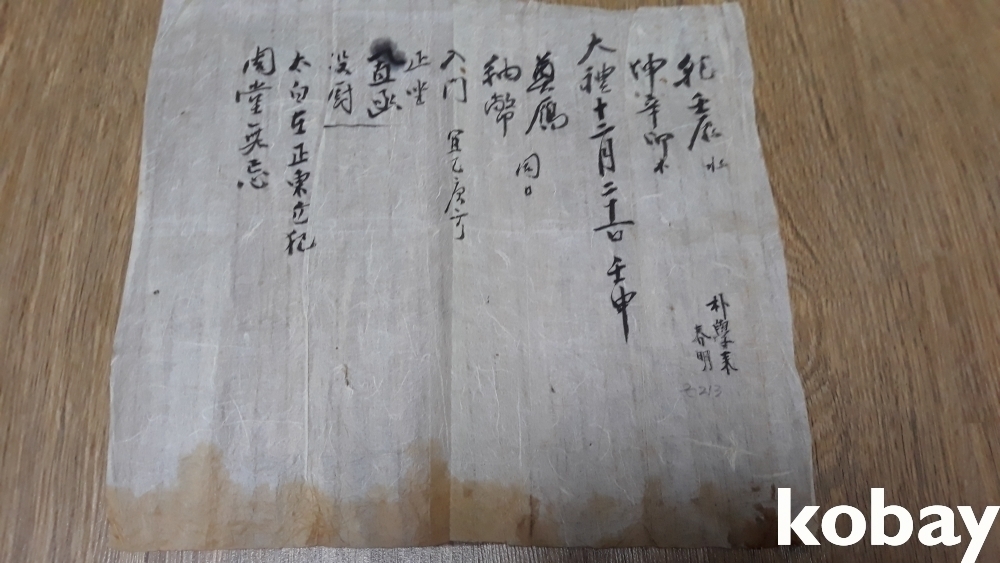 乾壬辰 水
坤辛卯 木
大禮十二月二十日 壬申
奠鴈
同日
納幣
入門 宜乙庚方
正坐
設廚
太白在正東方犯
周堂無忌
朴學來
春明
213
kobay